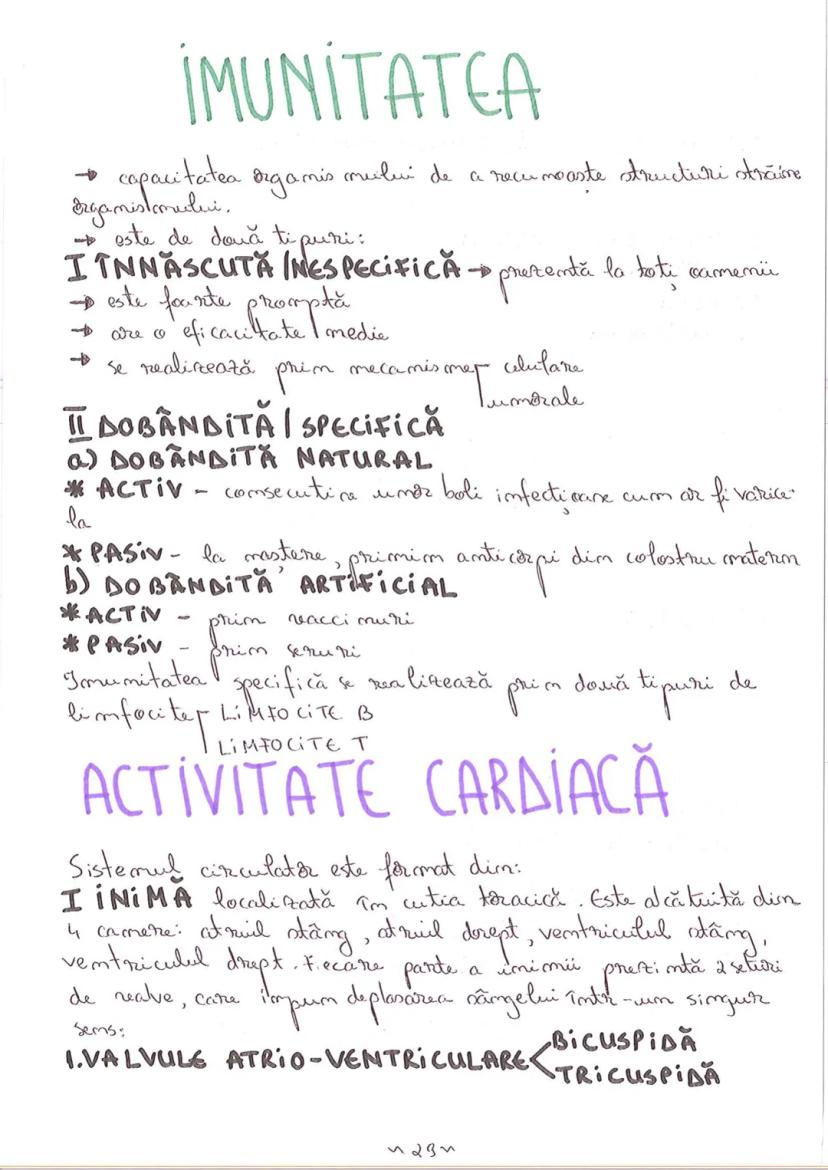 IMUNITATEA
→ capacitatea organismului de a recunoaște structuri străine
organismului.
→ este de două tipuri:
I ÎNNĂSCUTĂ/NESPECIFICĂ → prezentă la toți oamenii
→ este foarte promptă
→ are o eficacitate medie
→ se realizează prin mecanisme celulare
umorale
II DOBÂNDITĂ/SPECIFICĂ
a) DOBÂNDITĂ NATURAL
* ACTIV - consecutiva unor boli infecțioare cum ar fi varice-
la
* PASIV - la naștere, primim anticorpi din colostru matern
b) DOBÂNDITĂ ARTIFICIAL
* ACTIV - prin vaccinuri
* PASIV - prin seruri
Imunitatea specifică se realizează prin două tipuri de
limfocite LIMFOCITE B
LIMFOCITE T
ACTIVITATE CARDIACĂ
Sistemul circulator este format din:
I INIMĂ localizată în cutia toracică. Este alcătuită din
4 camere: atriul stâng, atriul drept, ventriculul stâng,
ventriculul drept. Fiecare parte a inimii prezintă 2 seturi
de valve, care impun deplasarea sângelui într-un singur
sens:
1. VALVULE ATRIO-VENTRICULARE < BICUSPIDĂ
TRICUSPIDĂ
~29~